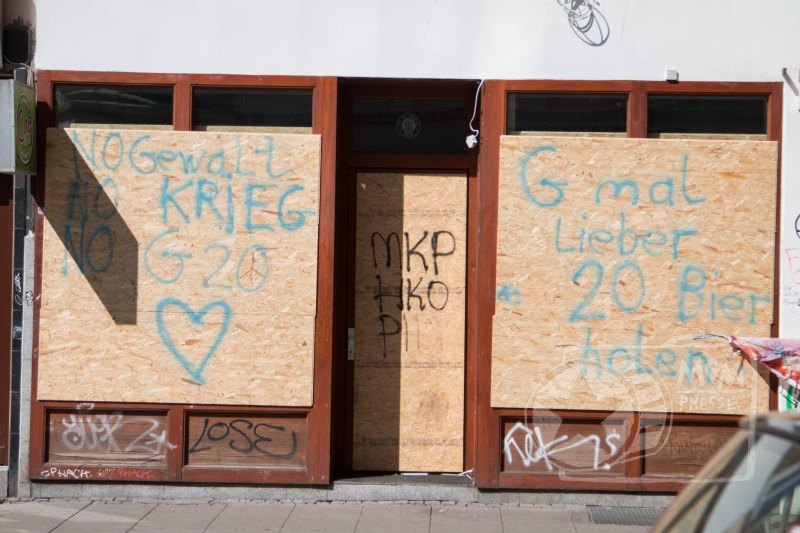 NO Gewalt
NO KRIEG
NO G20
MKP
HKO
PI
G mal
Lieber
20 Bier
holen
LOSE
PRESSE